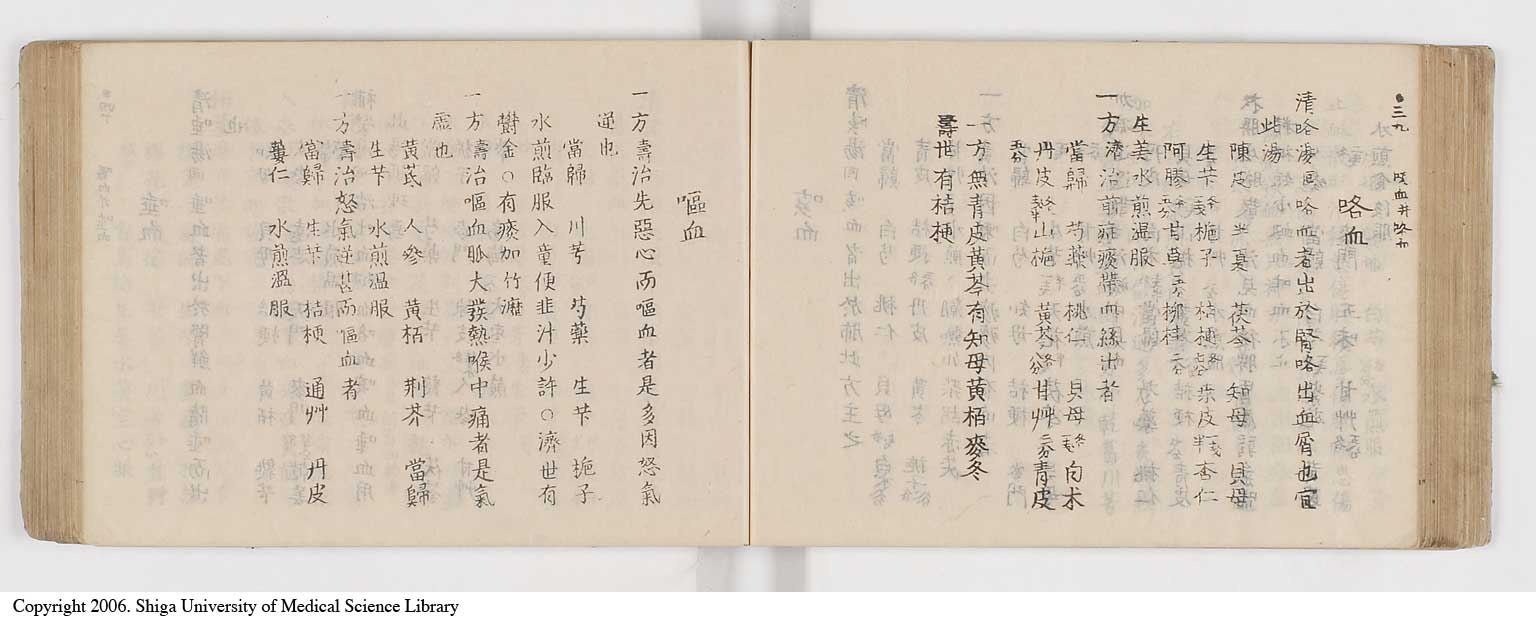 三九
咯血
清咯湯 咯血者出於腎咯出血屑也宜
此湯
陳皮 半夏 茯苓 知母 貝母
生芐 梔子 桔梗 桑皮 杏仁
阿膠 甘草 柳桂
生姜水煎温服
一方濟治前症痰帶血絲出者
當歸 芍藥 桃仁 貝母 白朮
丹皮 山梔 黄芩 甘艸 青皮
一方無青皮黄芩有知母黄栢麥冬
壽世有桔梗
嘔血
一方壽治先惡心而嘔血者是多因怒氣
逆也
當歸 川芎 芍藥 生芐 梔子
水煎臨服入童便韭汁少許○濟世有
欝金○有痰加竹瀝
一方壽治嘔血脈大發熱喉中痛者是氣
虛也
黄芪 人參 黄栢 荆芥 當歸
生芐 水煎温服
一方壽治怒氣逆甚而嘔血者
當歸 生芐 桔梗 通艸 丹皮
蔞仁 水煎溫服
Copyright 2006. Shiga University of Medical Science Library